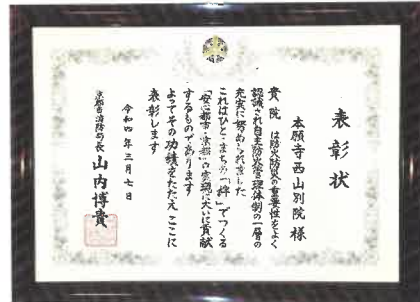 表彰状
本願寺西山別院 様
貴院 は防火防災の重要性をよく
認識され自主防火管理体制の一層の
充実に努められました
これはひと・まちの「絆」でつくる
「安心都市・京都」の実現に大いに貢献
するものであります
よってその功績をたたえ ここに
表彰します
令和四年三月七日
京都市消防局長 山内博貴